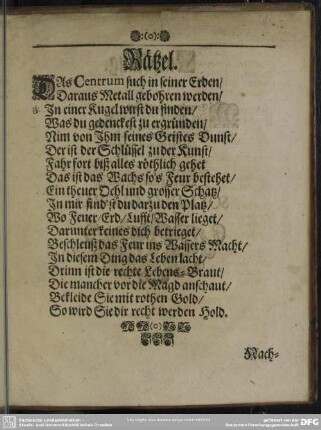 :(o):
Rätzel.
DAs Centrum such in seiner Erden/
Daraus Metall gebohren werden/
In einer Kugel wirst du finden/
Was du gedenckest zu ergründen/
Nim von Ihm seines Geistes Dunst/
Der ist der Schlüssel zu der Kunst/
Fahr fort biß alles röthlich gehet
Das ist das Wachs so's Feur bestehet/
Ein theuer Oehl und grosser Schatz/
In mir find'st du darzu den Platz/
Wo Feuer/Erd/Lufft/Wasser lieget/
Darunter keines dich betrieget/
Beschleuß das Feur ins Wassers Macht/
In diesem Ding das Leben lacht/
Drinn ist die rechte Lebens-Braut/
Die mancher vor die Magd anschaut/
Bekleide Sie mit rothen Gold/
So wird Sie dir recht werden Hold.
(o)
Nach-